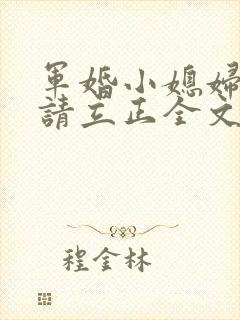 軍婚小媳婦
請立正全文
程金林